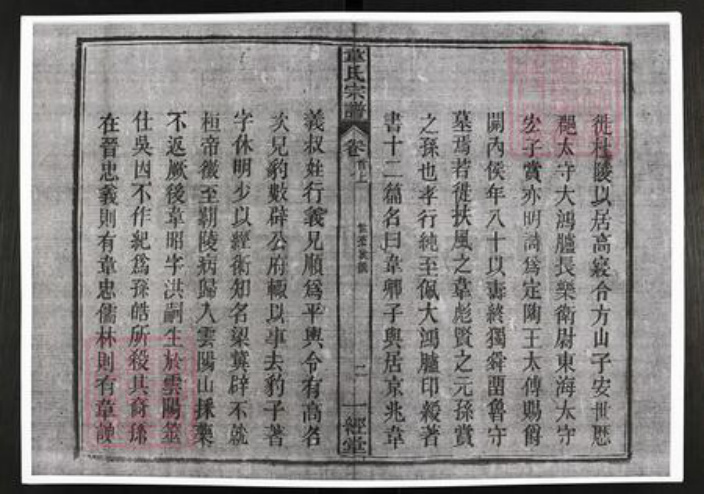 徙杜陵以居高寢令方山子安世歷
太守大鴻臚長樂衛尉東海太守
宏子賞亦明詩為定陶王太傅賜爵
關內侯年八十以壽終獨舜留魯守
墓焉若徙扶風之韋彪賢之元孫賞
之孫也孝行純至佩大鴻臚印綬著
書十二篇名曰韋卿子與居京兆韋
韋氏宗譜
卷首上
二
一經堂
義叔姓行義兄順為平輿令有高名
次兄豹數辟公府輒以事去豹子著
字休明少以經術知名梁冀辟不就
桓帝徵至霸陵病歸入雲陽山採藥
不返厥後韋昭字洪嗣生於雲陽
仕吳因不作紀為孫皓所殺其裔
在晉忠義則有韋忠儒林則有韋謏